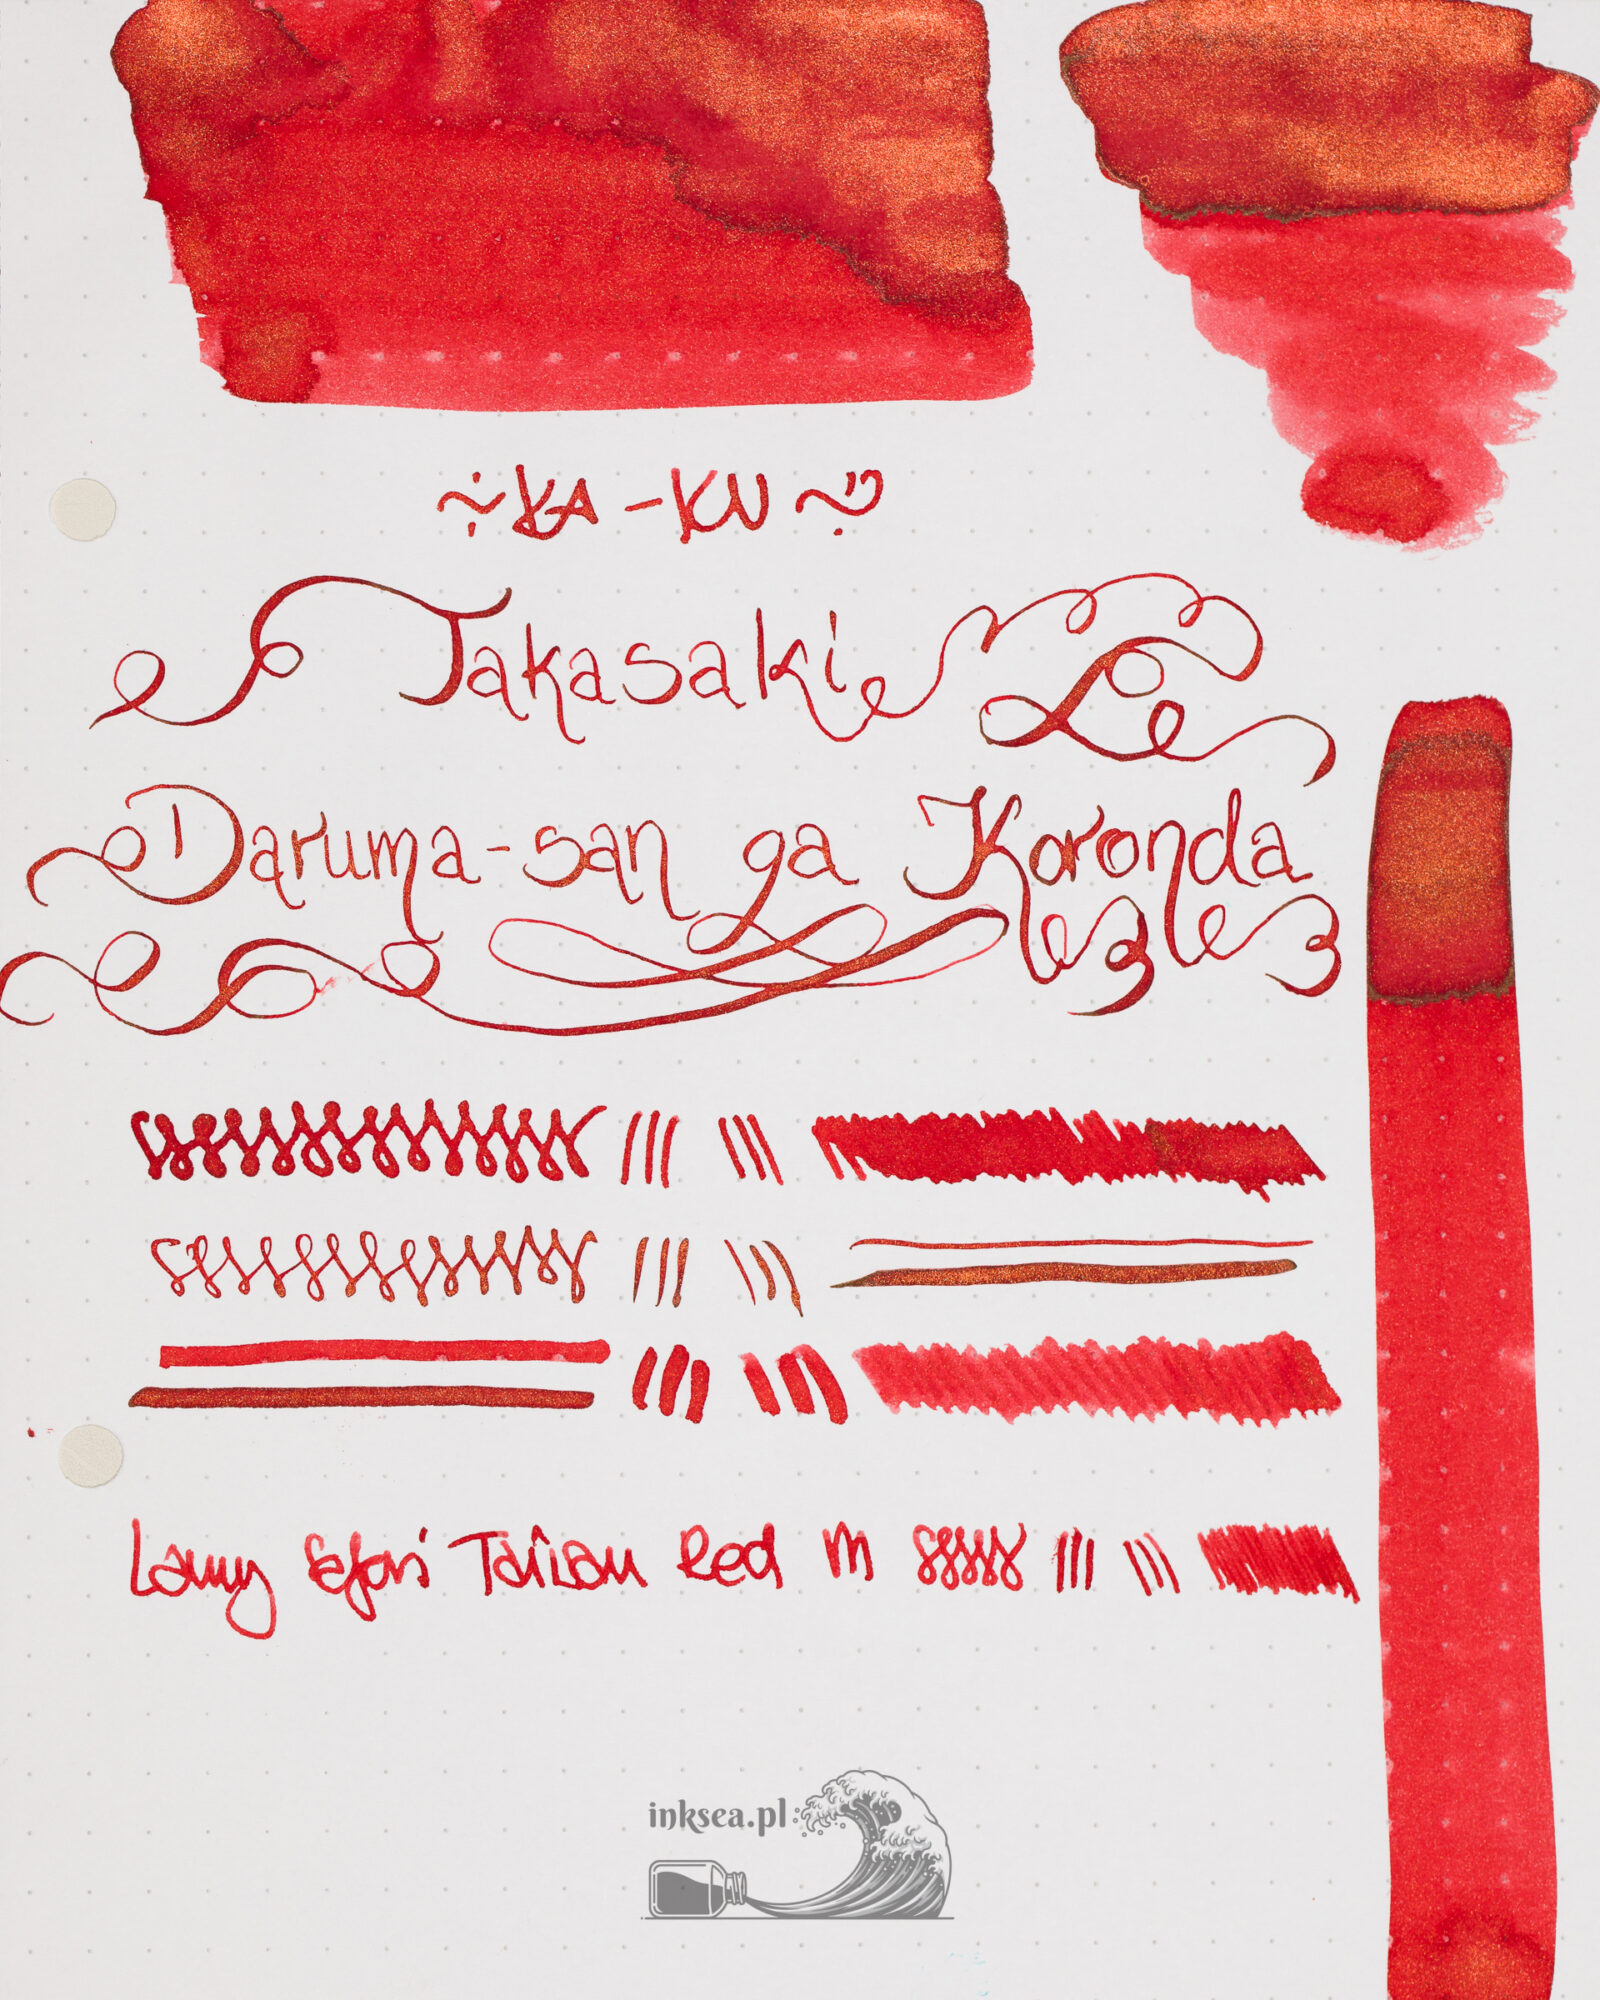 ~KA-KU~
Takasaki
Daruma-san ga Koronda
Lamy Safari Taiwan Red M
inksea.pl